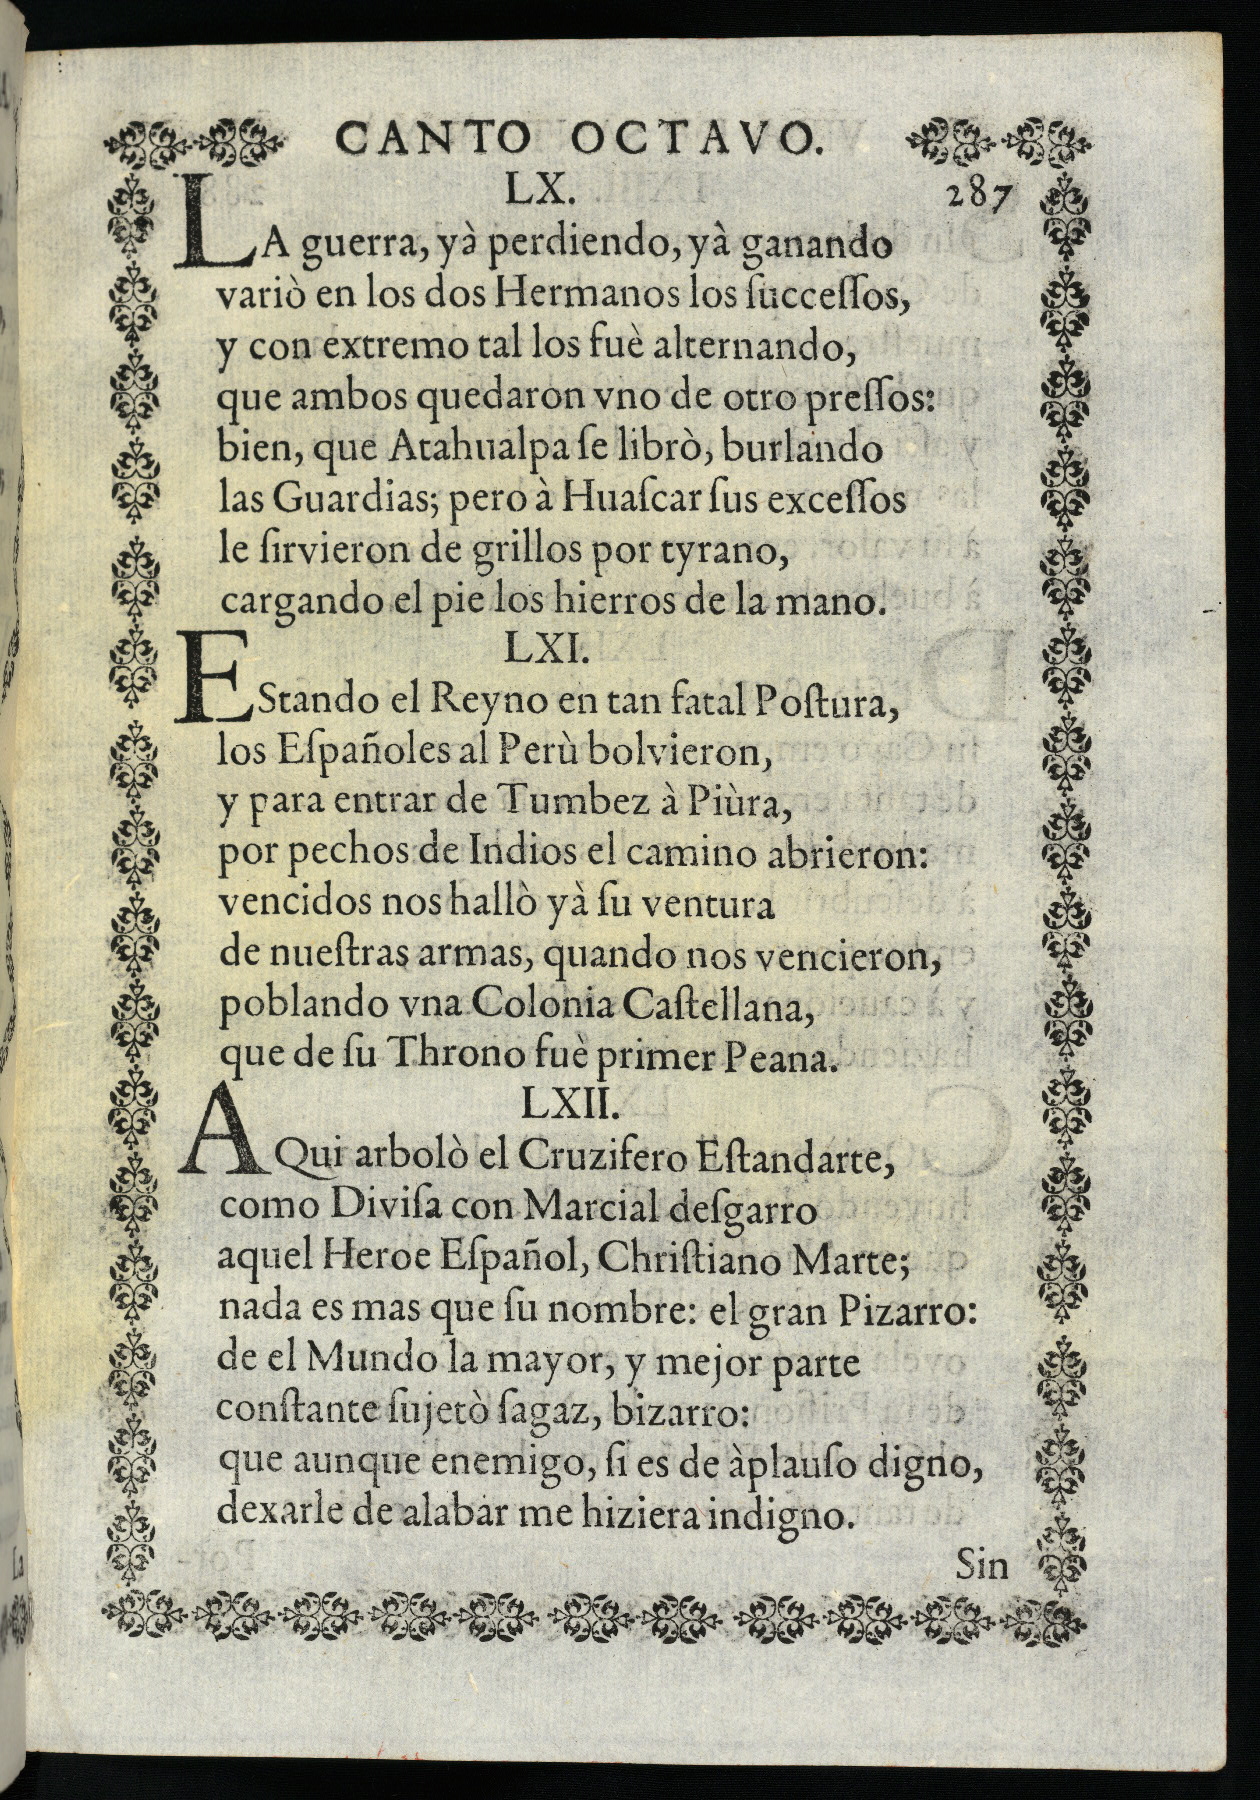 CANTO OCTAVO.
LX. 287
LA guerra, yà perdiendo, yà ganando
variò en los dos Hermanos los ſucceſſos,
y con extremo tal los fuè alternando,
que ambos quedaron vno de otro preſſos:
bien, que Atahualpa ſe librò, burlando
las Guardias; pero à Huaſcar ſus exceſſos
le ſirvieron de grillos por tyrano,
cargando el pie los hierros de la mano.
LXI.
EStando el Reyno en tan fatal Poſtura,
los Eſpañoles al Perù bolvieron,
y para entrar de Tumbez à Piùra,
por pechos de Indios el camino abrieron:
vencidos nos hallò yà ſu ventura
de nueſtras armas, quando nos vencieron,
poblando vna Colonia Caſtellana,
que de ſu Throno fuè primer Peana.
LXII.
AQui arbolò el Cruzifero Eſtandarte,
como Diviſa con Marcial deſgarro
aquel Heroe Eſpañol, Chriſtiano Marte;
nada es mas que ſu nombre: el gran Pizarro:
de el Mundo la mayor, y mejor parte
conſtante ſujetò ſagaz, bizarro:
que aunque enemigo, ſi es de àplauſo digno,
dexarle de alabar me hiziera indigno.
Sin